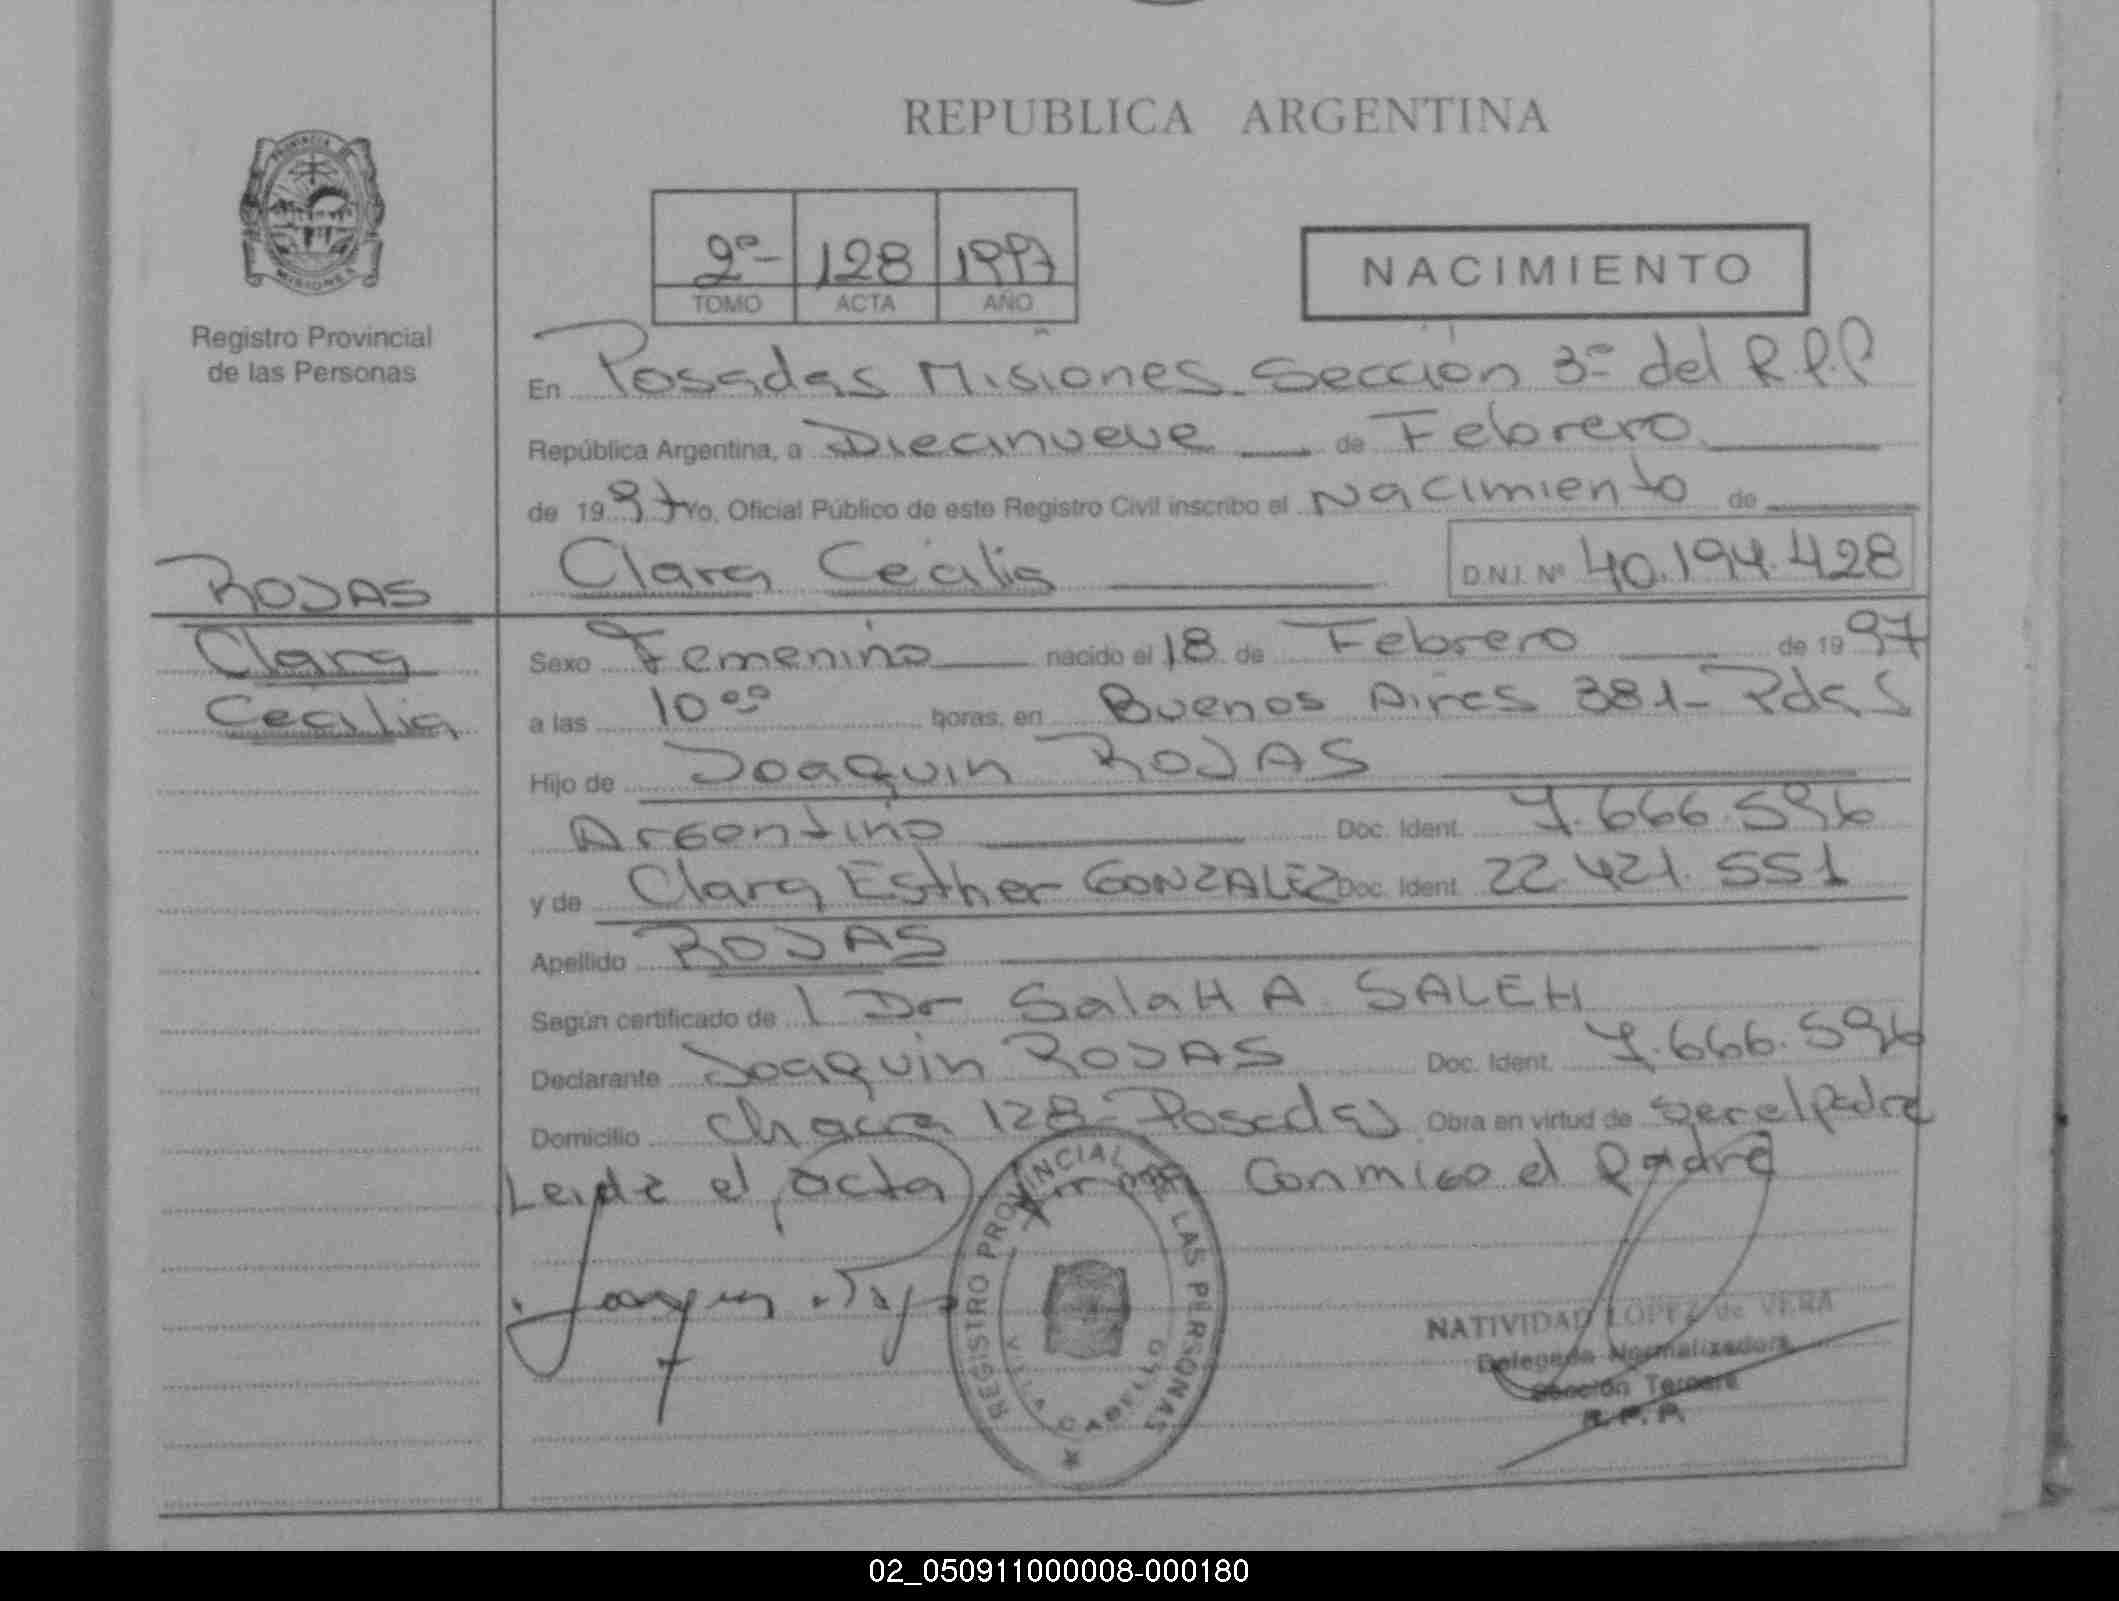 REPUBLICA ARGENTINA
PROVINCIA DE
MISIONES
Registro Provincial
de las Personas
2º- 128 1997
TOMO ACTA AÑO
NACIMIENTO
En Posadas Misiones Sección 3º del R.P.P
República Argentina, a Diecinueve de Febrero
de 1997 Yo, Oficial Público de este Registro Civil inscribo el Nacimiento de
Clara Cecilia D.N.I. Nº 40.194.428
ROJAS
Clara
Cecilia
Sexo Femenino nacido el 18 de Febrero de 1997
a las 10 ºº horas, en Buenos Aires 381- Pdas
Hijo de Joaquin ROJAS
Argentino Doc. Ident. 7.666.596
y de Clara Esther GONZALEZ Doc. Ident. 22.421.551
Apellido ROJAS
Según certificado de l Dr Salah A. SALEH
Declarante Joaquin ROJAS Doc. Ident. 7.666.596
Domicilio chacra 128- Posadas Obra en virtud de ser el padre
Leida el acta firma conmigo el padre
REGISTRO PROVINCIAL DE LAS PERSONAS
VILLA CABELLO
Joaquin Rojas
NATIVIDAD LOPEZ de VERA
Delegada Normalizadora
Sección Tercera
R.P.P.
02_050911000008-000180